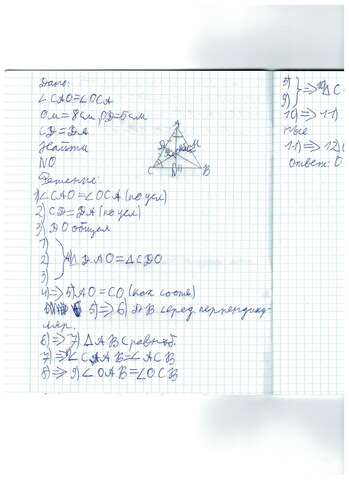 Дано:
∠CAO=∠OCA
OM=8см, OD=5см
CD=DA
Найти
NO
Решение:
1) ∠CAO=∠OCA (по усл)
2) CD=DA (по усл)
3) DO общая
1)
2) 4) △DAO=△CDO
3)
4) ⇒ 5) AO=CO (как соотв)
5) ⇒ 6) DB серед перпендику-
ляр.
6) ⇒ 7) △ABC равноб.
7) ⇒ 8) ∠CAB=∠ACB
8) ⇒ 9) ∠OAB=∠OCB
A
D
M
O
C
N
B
5)
9)
⇒ 10) △C
10) ⇒ 11)
ные
11) ⇒ 12)
Ответ: